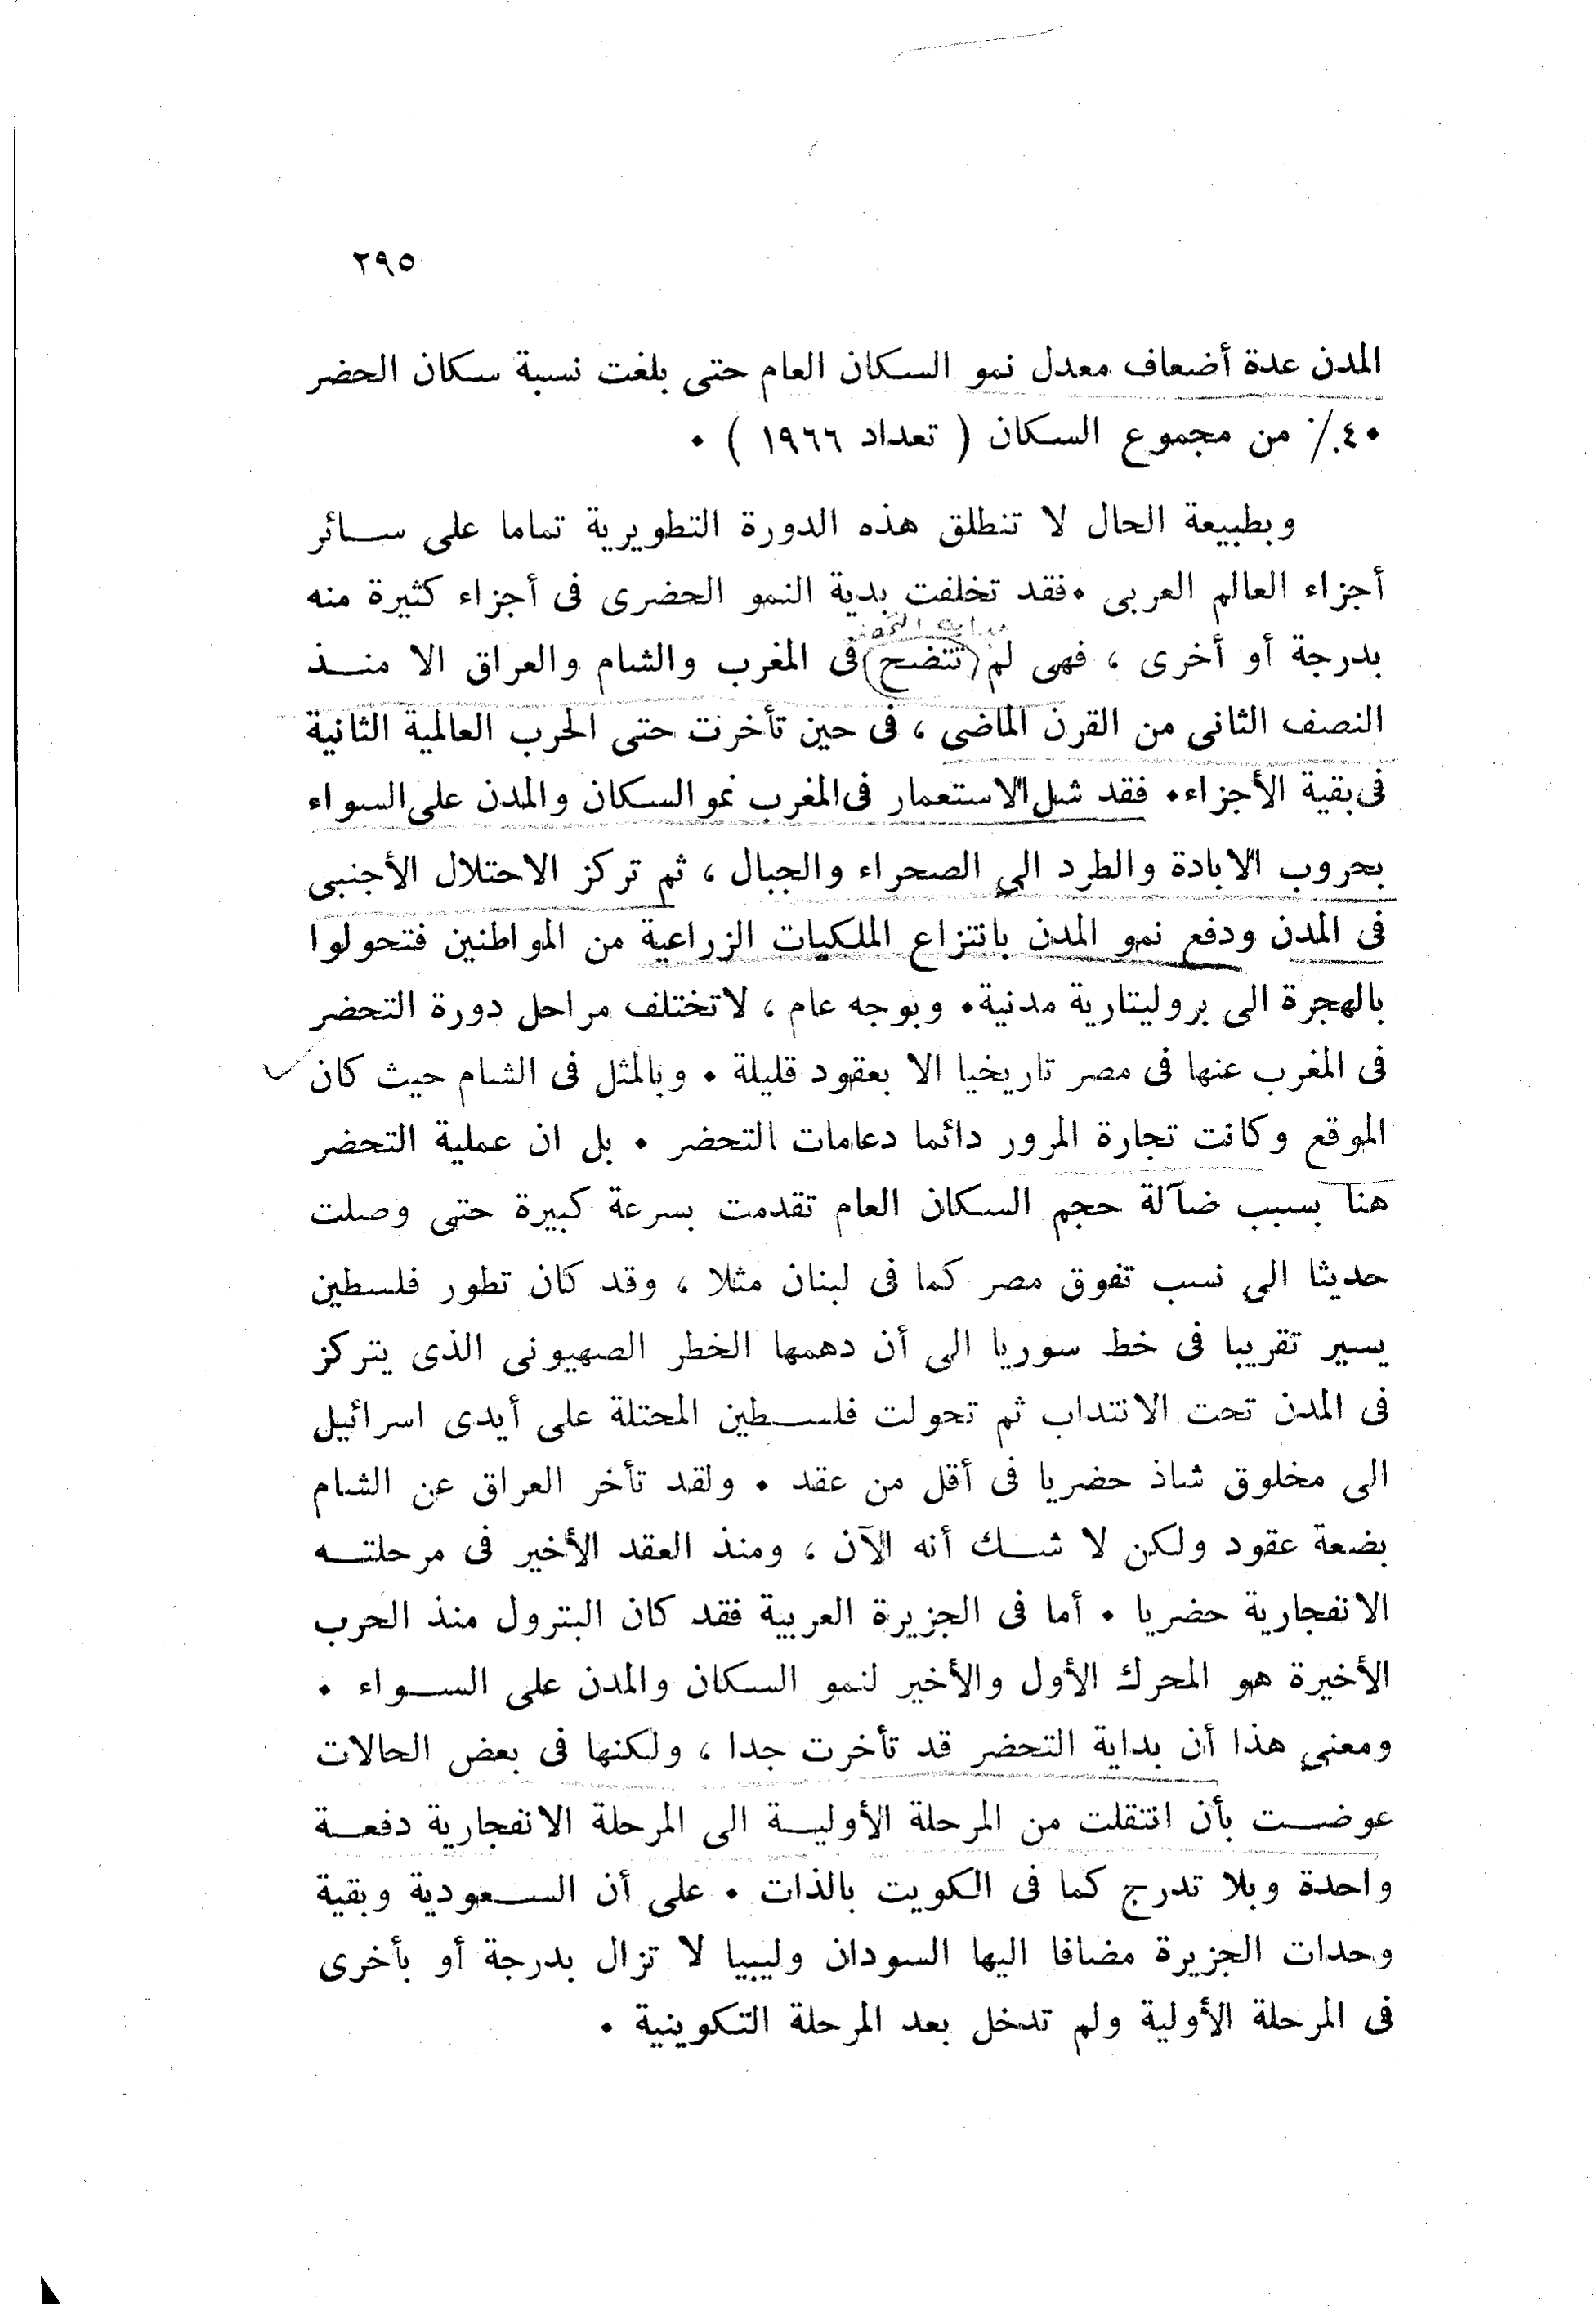 ٢٩٥
المدن عدة أضعاف معدل نمو السكان العام حتى بلغت نسبة سكان الحضر
٤٠٪ من مجموع السكان ( تعداد ١٩٦٦ ) ٠
وبطبيعة الحال لا تنطلق هذه الدورة التطويرية تماما على سائر
أجزاء العالم العربى ٠ فقد تخلفت بدية النمو الحضرى فى أجزاء كثيرة منه
بداية التحضر
بدرجة أو أخرى ، فهى لم (تتضح) فى المغرب والشام والعراق الا منذ
النصف الثانى من القرن الماضى ، فى حين تأخرت حتى الحرب العالمية الثانية
فى بقية الأجزاء٠ فقد شل الاستعمار فى المغرب نمو السكان والمدن على السواء
بحروب الابادة والطرد الى الصحراء والجبال ، ثم تركز الاحتلال الأجنبى
فى المدن ودفع نمو المدن بانتزاع الملكيات الزراعية من المواطنين فتحولوا
بالهجرة الى بروليتارية مدنية٠ وبوجه عام ، لاتختلف مراحل دورة التحضر
فى المغرب عنها فى مصر تاريخيا الا بعقود قليلة ٠ وبالمثل فى الشام حيث كان
الموقع وكانت تجارة المرور دائما دعامات التحضر ٠ بل ان عملية التحضر
هنا بسبب ضآلة حجم السكان العام تقدمت بسرعة كبيرة حتى وصلت
حديثا الى نسب تفوق مصر كما فى لبنان مثلا ، وقد كان تطور فلسطين
يسير تقريبا فى خط سوريا الى أن دهمها الخطر الصهيونى الذى يتركز
فى المدن تحت الانتداب ثم تحولت فلسطين المحتلة على أيدى اسرائيل
الى مخلوق شاذ حضريا فى أقل من عقد ٠ ولقد تأخر العراق عن الشام
بضعة عقود ولكن لا شك أنه الآن ، ومنذ العقد الأخير فى مرحلته
الانفجارية حضريا ٠ أما فى الجزيرة العربية فقد كان البترول منذ الحرب
الأخيرة هو المحرك الأول والأخير لنمو السكان والمدن على السواء ٠
ومعنى هذا أن بداية التحضر قد تأخرت جدا ، ولكنها فى بعض الحالات
عوضت بأن انتقلت من المرحلة الأولية الى المرحلة الانفجارية دفعة
واحدة وبلا تدرج كما فى الكويت بالذات ٠ على أن السعودية وبقية
وحدات الجزيرة مضافا اليها السودان وليبيا لا تزال بدرجة أو بأخرى
فى المرحلة الأولية ولم تدخل بعد المرحلة التكوينية ٠